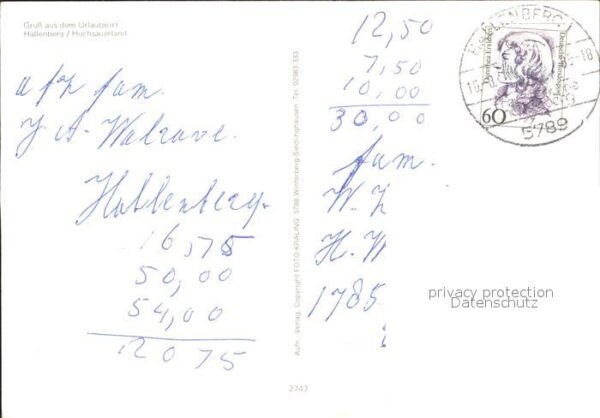 Gruß aus dem Urlaubsort
Hallenberg / Hochsauerland
afz fam.
J A- Walrave.
Hallenberg.
16,75
50,00
54,00
12075
Aufn., Verlag, Copyright FOTO-KRÄLING 5788 Winterberg-Siedlinghausen Tel. 02983-333
2747
12,50
7,50
10,00
30,00
fam.
W.
H. W
1785
HALLENBERG
60
5789
privacy protection
Datenschutz